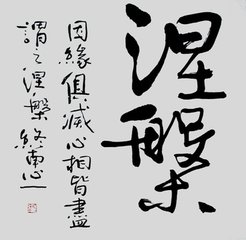 涅槃
因緣俱滅心相皆盡
謂之涅槃 終南心一